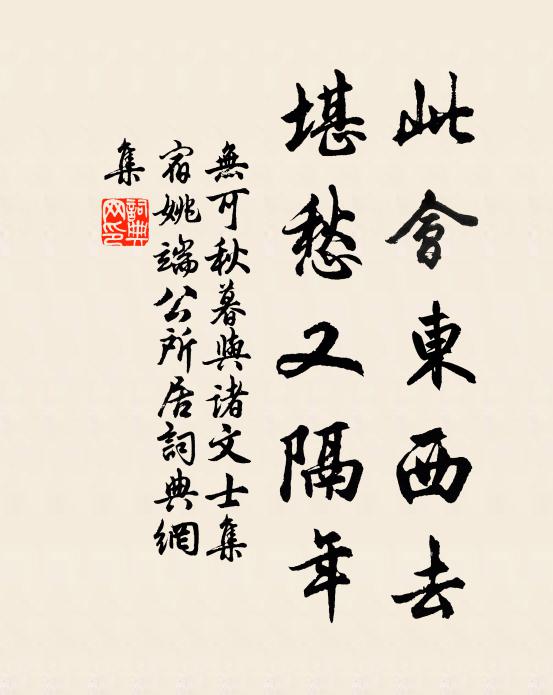 此會東西去
堪愁又隔年
無可秋暮與諸文士集
宿姚端公所居詞典網
集
詞典
网印